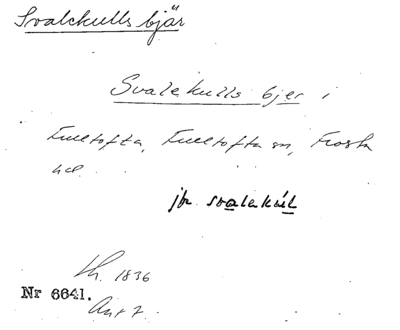 Svalekulls bjär
Svalekulls bjer i
Fulltofta, Fulltofta sn, Frosta
hd.
jfr svalekúl
Lh. 1836
Nr 6641.
Ant 7.